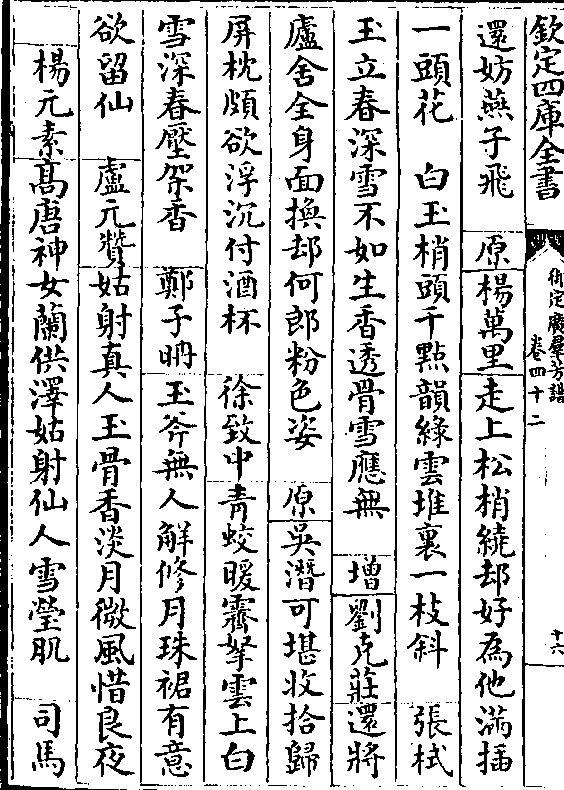 欽定四庫全書
御定廣羣芳譜
卷四十二
十六
還妨燕子飛　原楊萬里走上松梢繞却好為他滿插
一頭花　白玉梢頭千點韻綠雲堆裏一枝斜　張栻
玉立春深雪不如生香透骨雪應無　增劉克莊還將
廬舍全身面換却何郎粉色姿　原吳潛可堪收拾歸
屏枕頗欲浮沉付酒杯　徐致中青蛟暖霽拏雲上白
雪深春壓架香　鄭子𠕋玉斧無人解修月珠裾有意
欲留仙　盧元贊姑射真人玉骨香淡月微風惜良夜
楊元素髙唐神女蘭供澤姑射仙人雪瑩肌　司馬